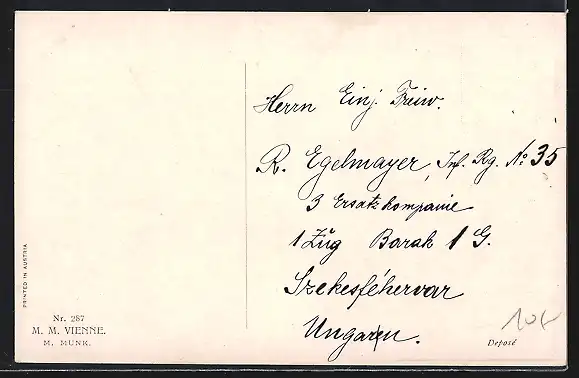 Herrn Einj. Freiw.
R. Egelmayer, Inf. Rg. No 35
3 Ersatzkompanie
1 Zŭg Barak 1 G.
Szekesféhervar
Ungarn.
PRINTED IN AUSTRIA
Nr. 287
M. M. VIENNE.
M. MUNK.
Deposé